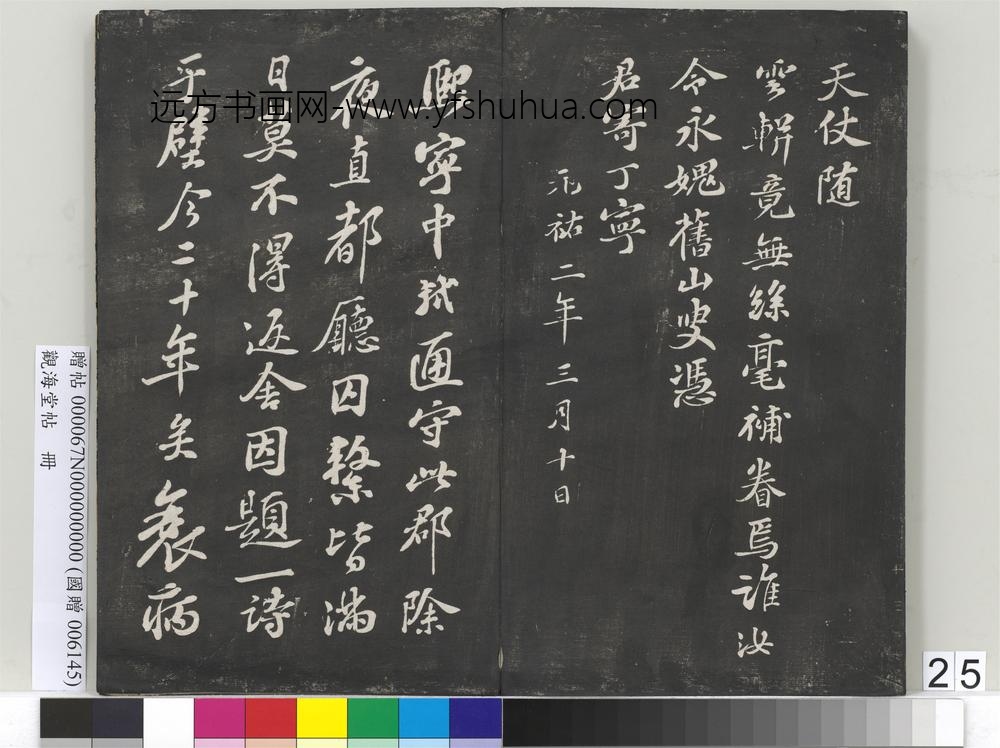 天仗随
雲輧竟無絲毫補眷焉誰汝
令永媿舊山叟憑
君寄丁寧
元祐二年三月十日
熙寧中軾通守此郡除
夜直都廳囚繫皆滿
日莫不得返舍因題一詩
于壁今二十年矣衰病
远方书画网-www.yfshuhua.com
贈帖 000067N000000000 (國贈 006145)
觀海堂帖 冊
25